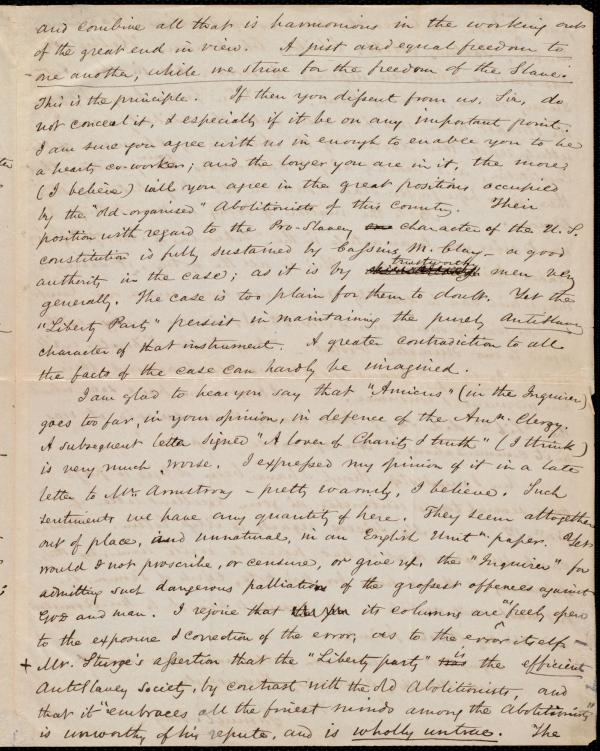 and combine all that is harmonious in the working out
of the great end in view. A just and equal freedom to
one another, while we strive for the freedom of the Slave.
This is the principle. If then you dissent from us, Sir, do
not conceal it, & especially if it be on any important point.
I am sure you agree with us in enough to enable you to be
a hearty co-worker; and the longer you are in it, the more
(I believe) will you agree in the great positions occupied
by the "old-organised" Abolitionists of this Country. Their
position with regard to the Pro-Slavery character of the U.S.
constitution is fully sustained by Cassius M. Clay - a good
authority in the case; as it is by trustworthy men very
generally. The case is too plain for them to doubt. Yet the
"Liberty Party" persist in maintaining the purely AntiSlavery
character of that instrument. A greater contradiction to all
the facts of the case can hardly be imagined.
I am glad to hear you say that "Amicus" (in the Inquirer)
goes too far, in your opinion, in defence of the Amn. Clergy.
A subsequent letter signed "A lover of Charity & truth" (I think)
is very much worse. I expressed my opinion of it in a late
letter to Mr. Armstrong - pretty warmly, I believe. Such
sentiments we have any quantity of here. They seem altogether
out of place, and unnatural, in an English Unitn. paper. Yet
would I not proscribe, or censure, or give up, the "Inquirer" for
admitting such dangerous palliations of the grossest offences against
God and man. I rejoice that its columns are freely open
to the exposure & correction of the error, as to the error itself -
+ Mr. Sturge's assertion that the "Liberty party" is the efficient
AntiSlavery Society, by contrast with the old Abolitionists, and
that it "embraces all the finest minds among the Abolitionists"
is unworthy of his repute, and is wholly untrue. The